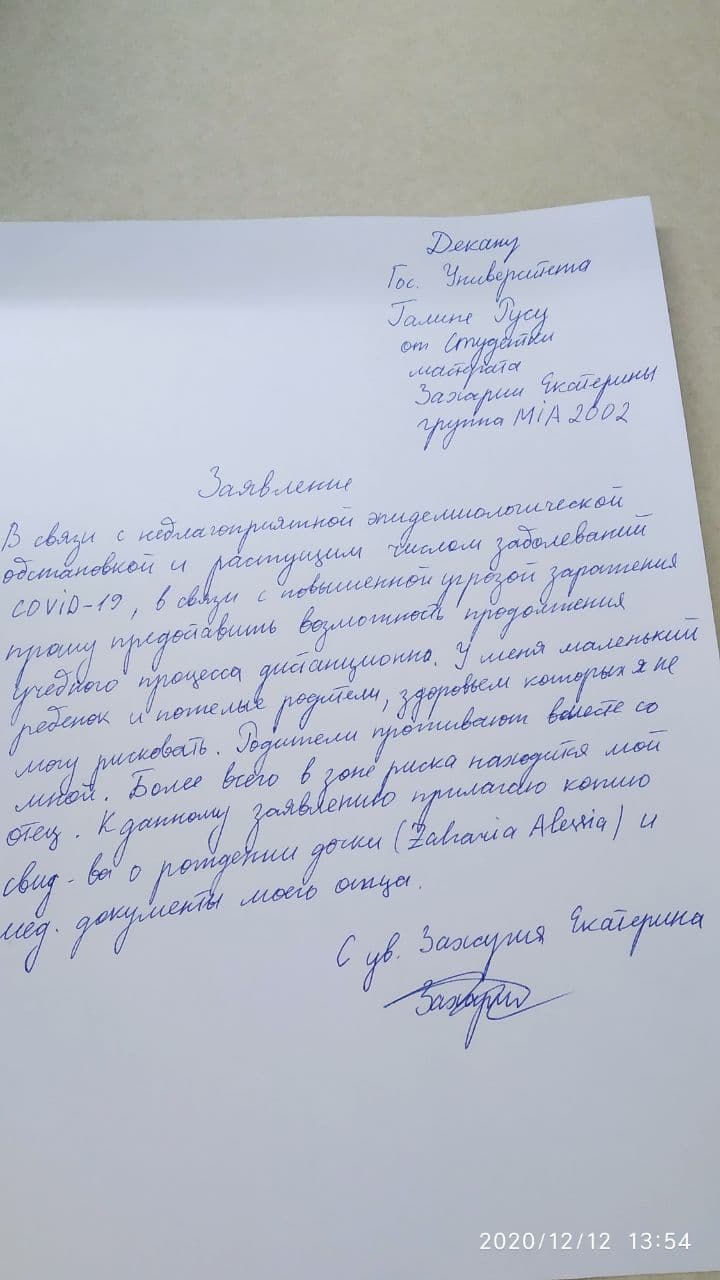 Декану
Гос. Университета
Галине Русу
от студентки
мастрата
Захарии Екатерины
группа MiA 2002
Заявление
В связи с неблагоприятной эпидемиологической
обстановкой и растущим числом заболеваний
COViD-19, в связи с повышенной угрозой заражения
прошу предоставить возможность продолжения
учебного процесса дистанционно. У меня маленький
ребенок и пожелые родители, здоровьем которых я не
могу рисковать. Родители проживают вместе со
мной. Более всего в зоне риска находится мой
отец. К данному заявлению прилагаю копию
свид-ва о рождении дочки (Zaharia Alessia) и
мед. документы моего отца.
С ув. Захария Екатерина
Захария
2020/12/12 13:54